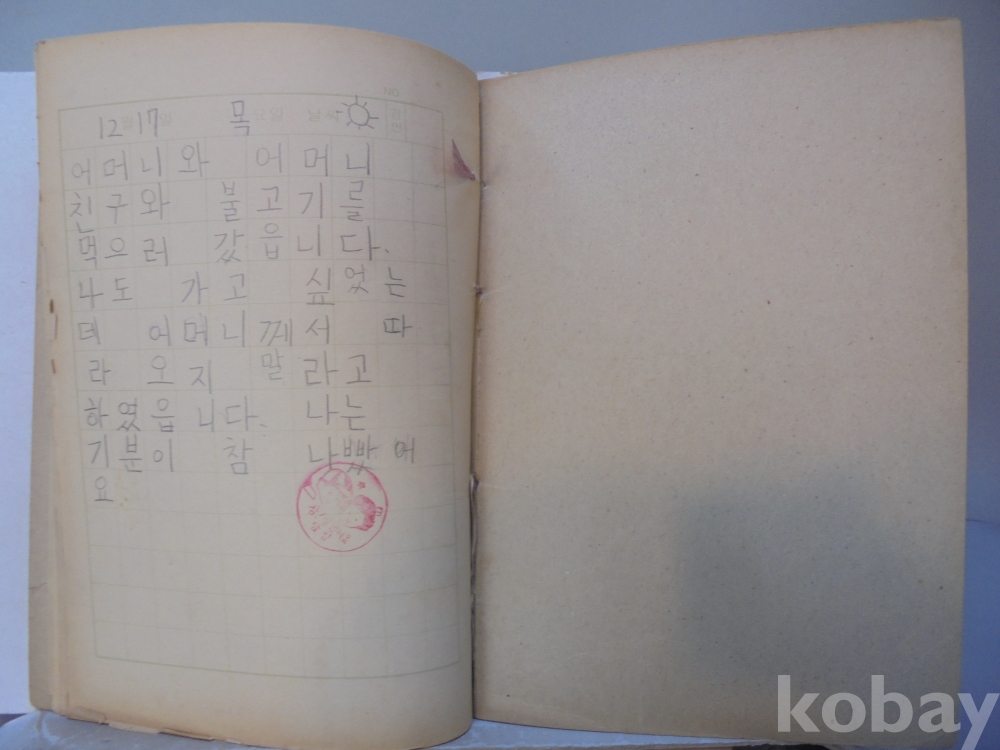 12월 17일 목 날씨
어머니와 어머니
친구와 불고기를
먹으러 갔읍니다.
나도 가고 싶었는
데 어머니께서 따
라 오지 말라고
하였읍니다. 나는
기분이 참 나빴어
요
kobay